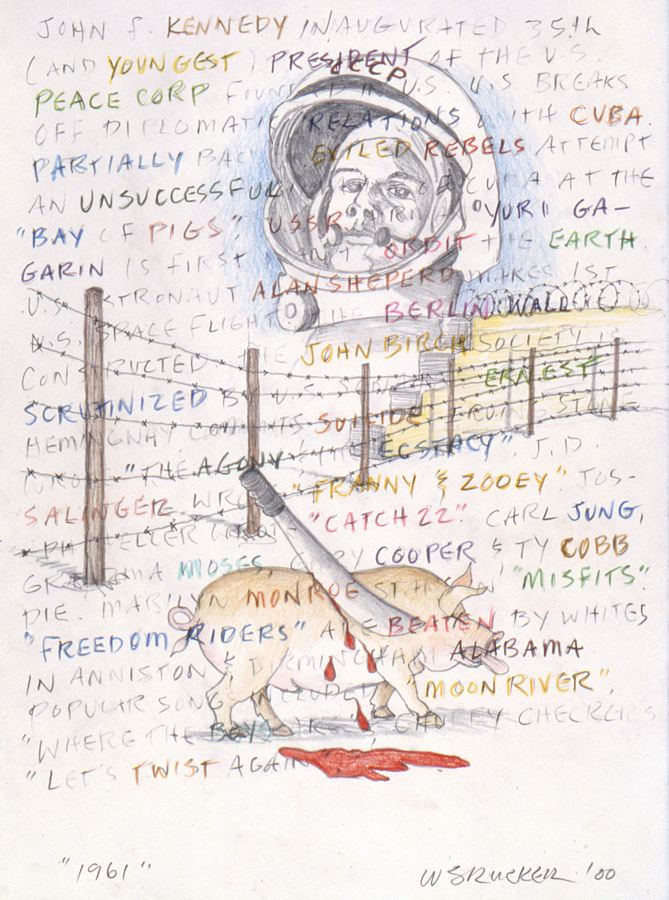 JOHN F. KENNEDY INAUGURATED 35th
(AND YOUNGEST) PRESIDENT OF THE U.S.
CCCP
PEACE CORP FOUNDED IN U.S. U.S. BREAKS
OFF DIPLOMATIC RELATIONS WITH CUBA.
PARTIALLY EXILED REBELS ATTEMPT
AN UNSUCCESSFUL CUBA AT THE
"BAY OF PIGS." USSR "YURI GA-
GARIN IS FIRST ORBIT THE EARTH.
ALAN SHEPERD MAKES 1ST
U.S. SPACE FLIGHT. THE BERLIN WALL IS
CONSTRUCTED. THE JOHN BIRCH SOCIETY IS
SCRUTINIZED BY U.S. ERNEST
HEMINGWAY SUICIDE IRVING STONE
"THE AGONY ECSTACY". J.D.
SALINGER WROTE "FRANNY & ZOOEY" JOS-
HELLER "CATCH 22." CARL JUNG,
GRANDMA MOSES, GARY COOPER & TY COBB
DIE. MARILYN MONROE STARS IN "MISFITS".
"FREEDOM RIDERS" ARE BEATEN BY WHITES
IN ANNISTON & BIRMINGHAM ALABAMA
POPULAR SONGS INCLUDED "MOON RIVER",
"WHERE THE BOYS ARE", CHUBBY CHECKER'S
"LET'S TWIST AGAIN
"1961" WS RUCKER '00